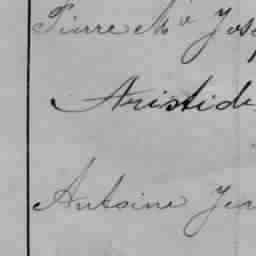 Pierre Mᵉ Jose
Aristide
Antoine Jea